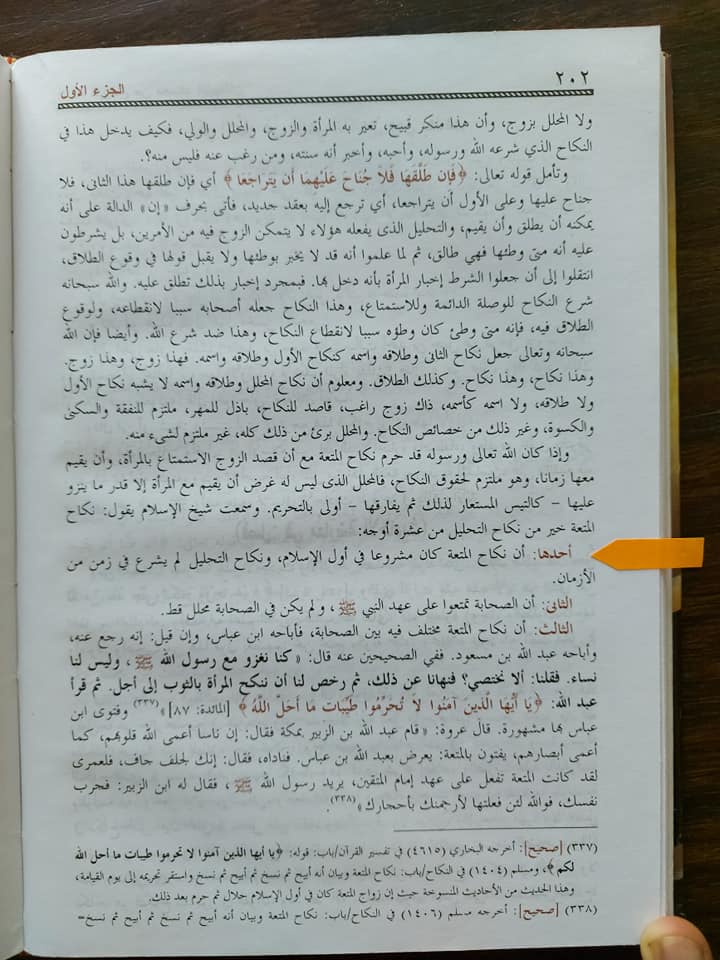 ٢٠٢
الجزء الأول
ولا المحلل بزوج، وأن هذا منكر قبيح، تعير به المرأة والزوج، والمحلل والولي، فكيف يدخل هذا في
النكاح الذي شرعه الله ورسوله، وأحبه، وأخبر أنه سنته، ومن رغب عنه فليس منه؟.
وتأمل قوله تعالى: ﴿فَإِن طَلَّقَهَا فَلاَ جُنَاحَ عَلَيْهِمَا أَن يَتَرَاجَعَا﴾ أي فإن طلقها هذا الثانى، فلا
جناح عليها وعلى الأول أن يتراجعا، أي ترجع إليه بعقد جديد، فأتى بحرف «إن» الدالة على أنه
يمكنه أن يطلق وأن يقيم، والتحليل الذى يفعله هؤلاء لا يتمكن الزوج فيه من الأمرين، بل يشرطون
عليه أنه متى وطئها فهي طالق، ثم لما علموا أنه قد لا يخبر بوطئها ولا يقبل قولها في وقوع الطلاق،
انتقلوا إلى أن جعلوا الشرط إخبار المرأة بأنه دخل بها. فبمجرد إخبار بذلك تطلق عليه. والله سبحانه
شرع النكاح للوصلة الدائمة وللاستمتاع، وهذا النكاح جعله أصحابه سببا لانقطاعه، ولوقوع
الطلاق فيه، فإنه متى وطئ كان وطؤه سببا لانقطاع النكاح، وهذا ضد شرع الله. وأيضا فإن الله
سبحانه وتعالى جعل نكاح الثانى وطلاقه واسمه كنكاح الأول وطلاقه واسمه. فهذا زوج، وهذا زوج.
وهذا نكاح، وهذا نكاح. وكذلك الطلاق. ومعلوم أن نكاح المحلل وطلاقه واسمه لا يشبه نكاح الأول
ولا طلاقه، ولا اسمه كأسمه، ذاك زوج راغب، قاصد للنكاح، باذل للمهر، ملتزم للنفقة والسكنى
والكسوة، وغير ذلك من خصائص النكاح. والمحلل برئ من ذلك كله، غير ملتزم لشىء منه.
وإذا كان الله تعالى ورسوله قد حرم نكاح المتعة مع أن قصد الزوج الاستمتاع بالمرأة، وأن يقيم
معها زمانا، وهو ملتزم لحقوق النكاح، فالمحلل الذى ليس له غرض أن يقيم مع المرأة إلا قدر ما ينزو
عليها – كالتيس المستعار لذلك ثم يفارقها – أولى بالتحريم. وسمعت شيخ الإسلام يقول: نكاح
المتعة خير من نكاح التحليل من عشرة أوجه:
أحدها: أن نكاح المتعة كان مشروعا في أول الإسلام، ونكاح التحليل لم يشرع في زمن من
الأزمان.
الثانى: أن الصحابة تمتعوا على عهد النبي ﷺ، ولم يكن في الصحابة محلل قط.
الثالث: أن نكاح المتعة مختلف فيه بين الصحابة، فأباحه ابن عباس، وإن قيل: إنه رجع عنه،
وأباحه عبد الله بن مسعود. ففي الصحيحين عنه قال: «كنا نغزو مع رسول الله ﷺ، وليس لنا
نساء. فقلنا: ألا نختصي؟ فنهانا عن ذلك، ثم رخص لنا أن ننكح المرأة بالثوب إلى أجل. ثم قرأ
عبد الله: ﴿يَا أَيُّهَا الَّذِينَ آمَنُوا لاَ تُحَرِّمُوا طَيِّبَاتِ مَا أَحَلَّ اللَّهُ﴾ [المائدة: ٨٧]»(٣٣٧) وفتوى ابن
عباس بها مشهورة. قال عروة: «قام عبد الله بن الزبير بمكة فقال: إن ناسا أعمى الله قلوبهم، كما
أعمى أبصارهم، يفتون بالمتعة: يعرض بعبد الله بن عباس. فناداه، فقال: إنك لجلف جاف، فلعمرى
لقد كانت المتعة تفعل على عهد إمام المتقين، يريد رسول الله ﷺ، فقال له ابن الزبير: فجرب
نفسك، فوالله لئن فعلتها لأرجمنك بأحجارك»(٣٣٨).
(٣٣٧) [صحيح]: أخرجه البخاري (٤٦١٥) في تفسير القرآن/باب: قوله: ﴿يا أيها الذين آمنوا لا تحرموا طيبات ما أحل الله
لكم﴾، ومسلم (١٤٠٤) في النكاح/باب: نكاح المتعة وبيان أنه أبيح ثم نسخ ثم أبيح ثم نسخ واستقر تحريمه إلى يوم القيامة،
وهذا الحديث من الأحاديث المنسوخة حيث إن زواج المتعة كان في أول الإسلام حلال ثم حرم بعد ذلك.
(٣٣٨) [صحيح]: أخرجه مسلم (١٤٠٦) في النكاح/باب: نكاح المتعة وبيان أنه أبيح ثم نسخ ثم أبيح ثم نسخ=